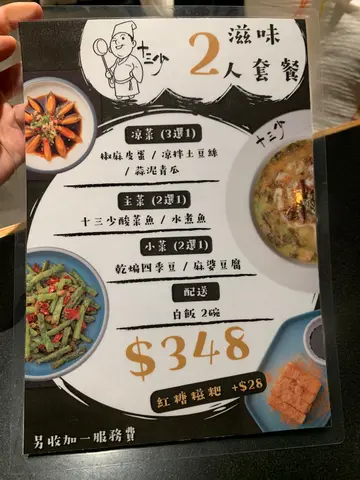 十三少
滋味
2人套餐
涼菜 (3選1)
椒麻皮蛋 / 涼拌土豆絲
/ 蒜泥青瓜
十三少
主菜 (2選1)
十三少酸菜魚 / 水煮魚
小菜 (2選1)
乾煸四季豆 / 麻婆豆腐
配送
白飯 2碗
$348
紅糖糍粑 +$28
另收加一服務費